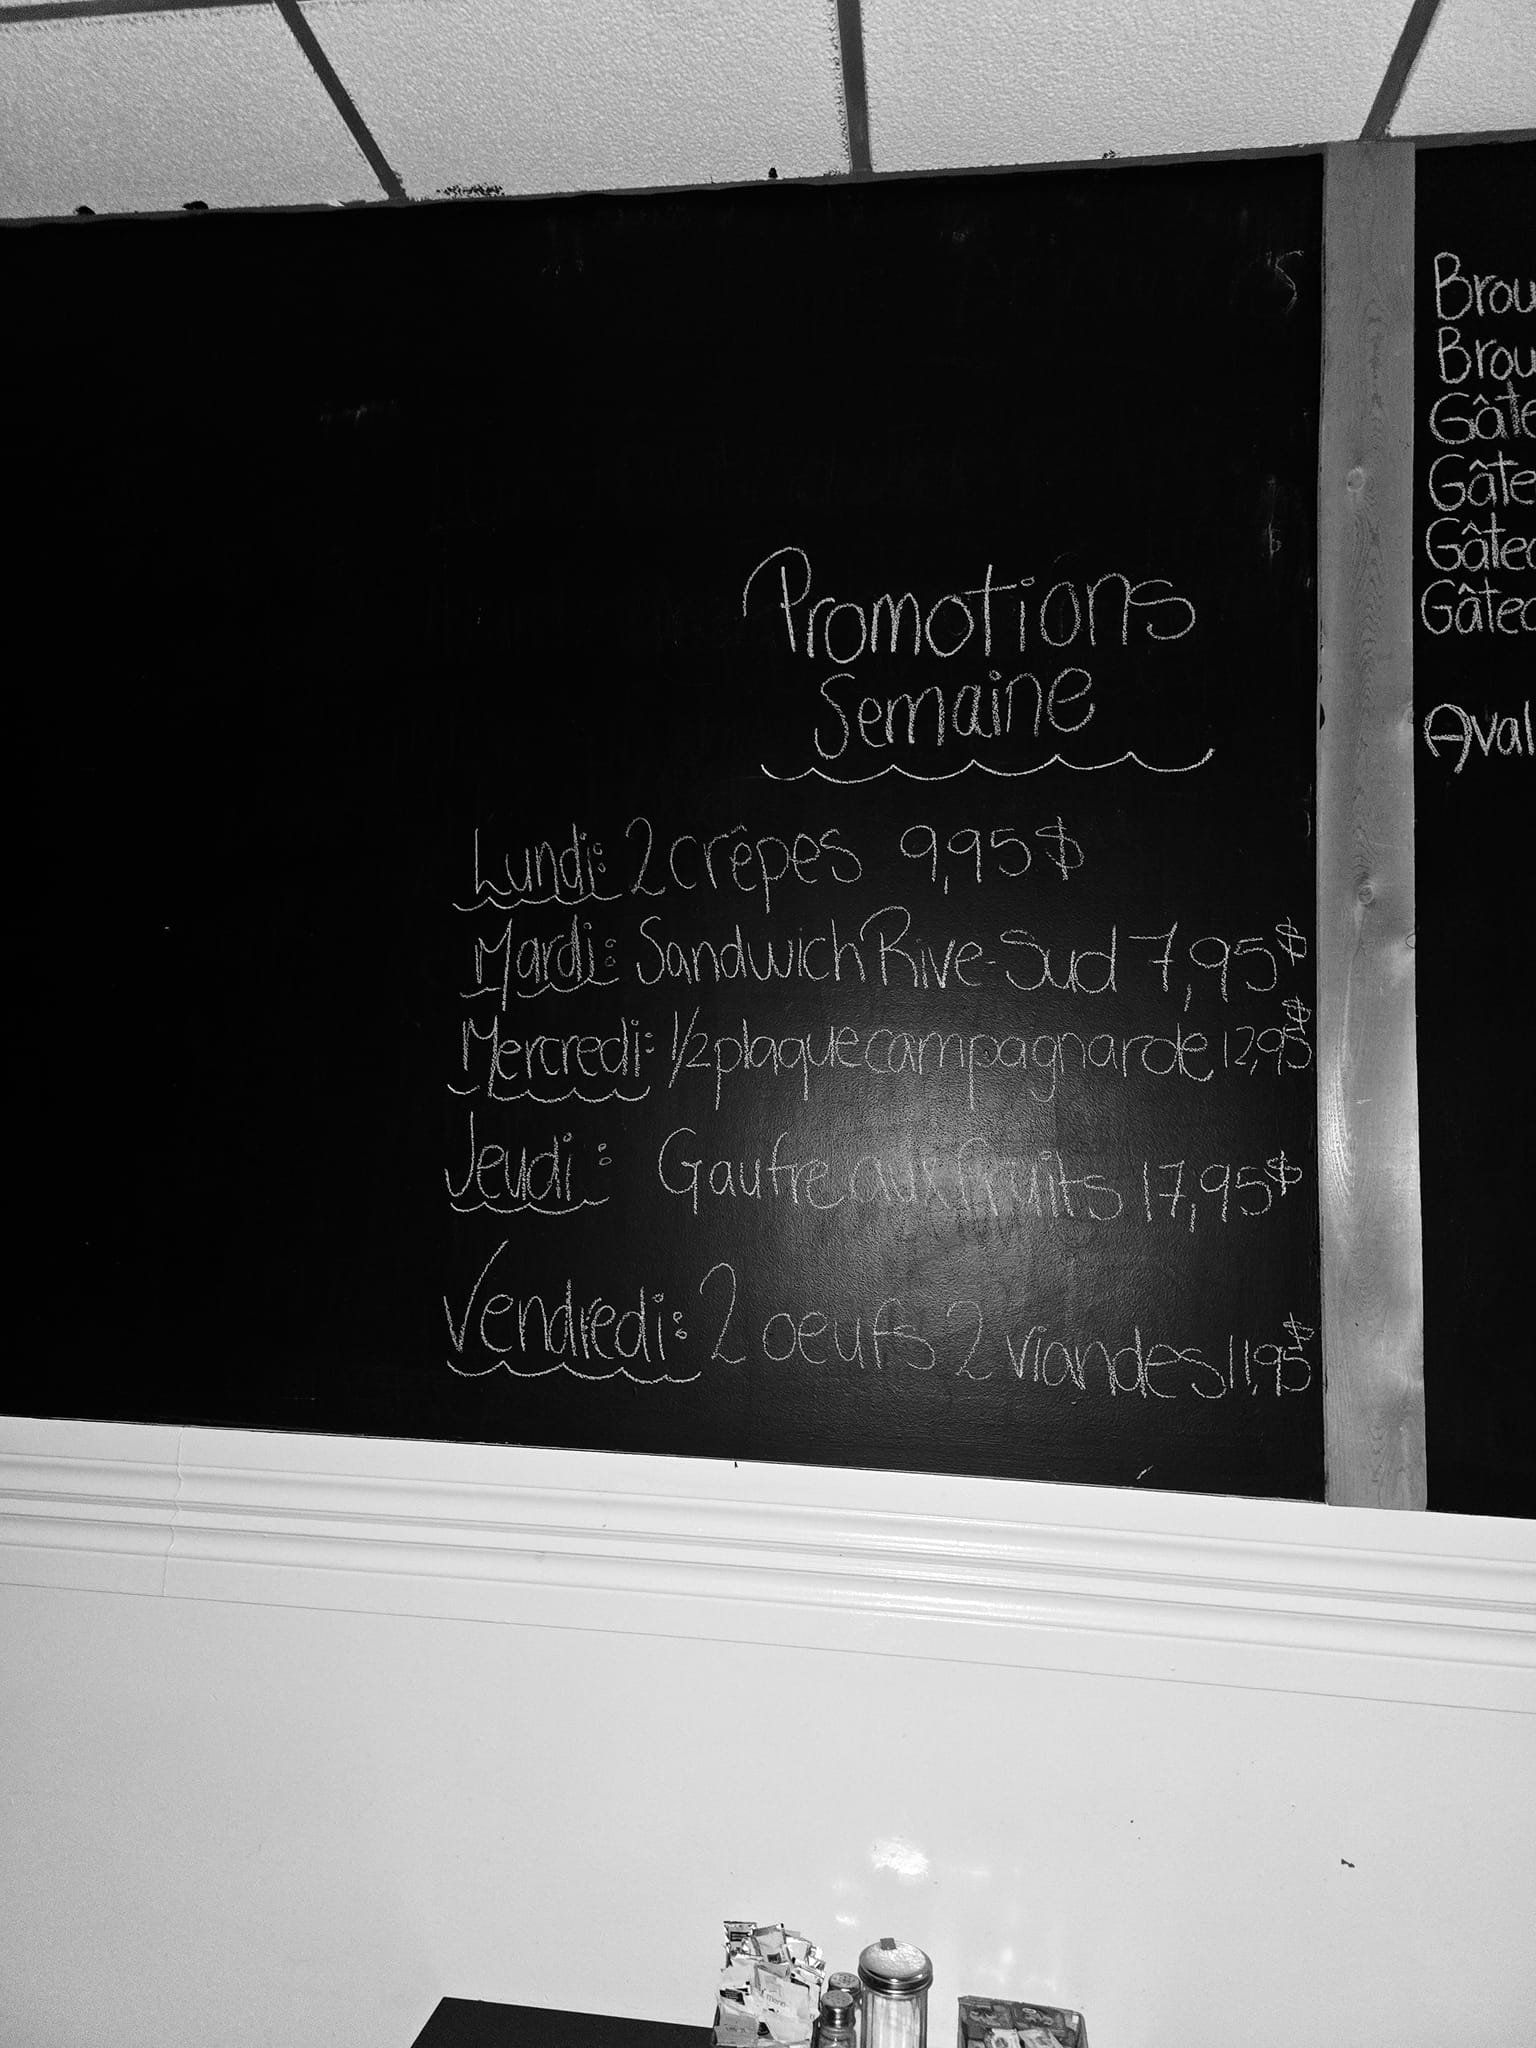 Promotions
Semaine
Lundi: 2 crêpes 9,95$
Mardi: Sandwich Rive-Sud 7,95$
Mercredi: 1/2 plaque campagnarde 12,95$
Jeudi: Gaufre aux fruits 17,95$
Vendredi: 2 oeufs 2 viandes 11,95$
Brou
Brou
Gâte
Gâte
Gâtea
Gâtea
Aval